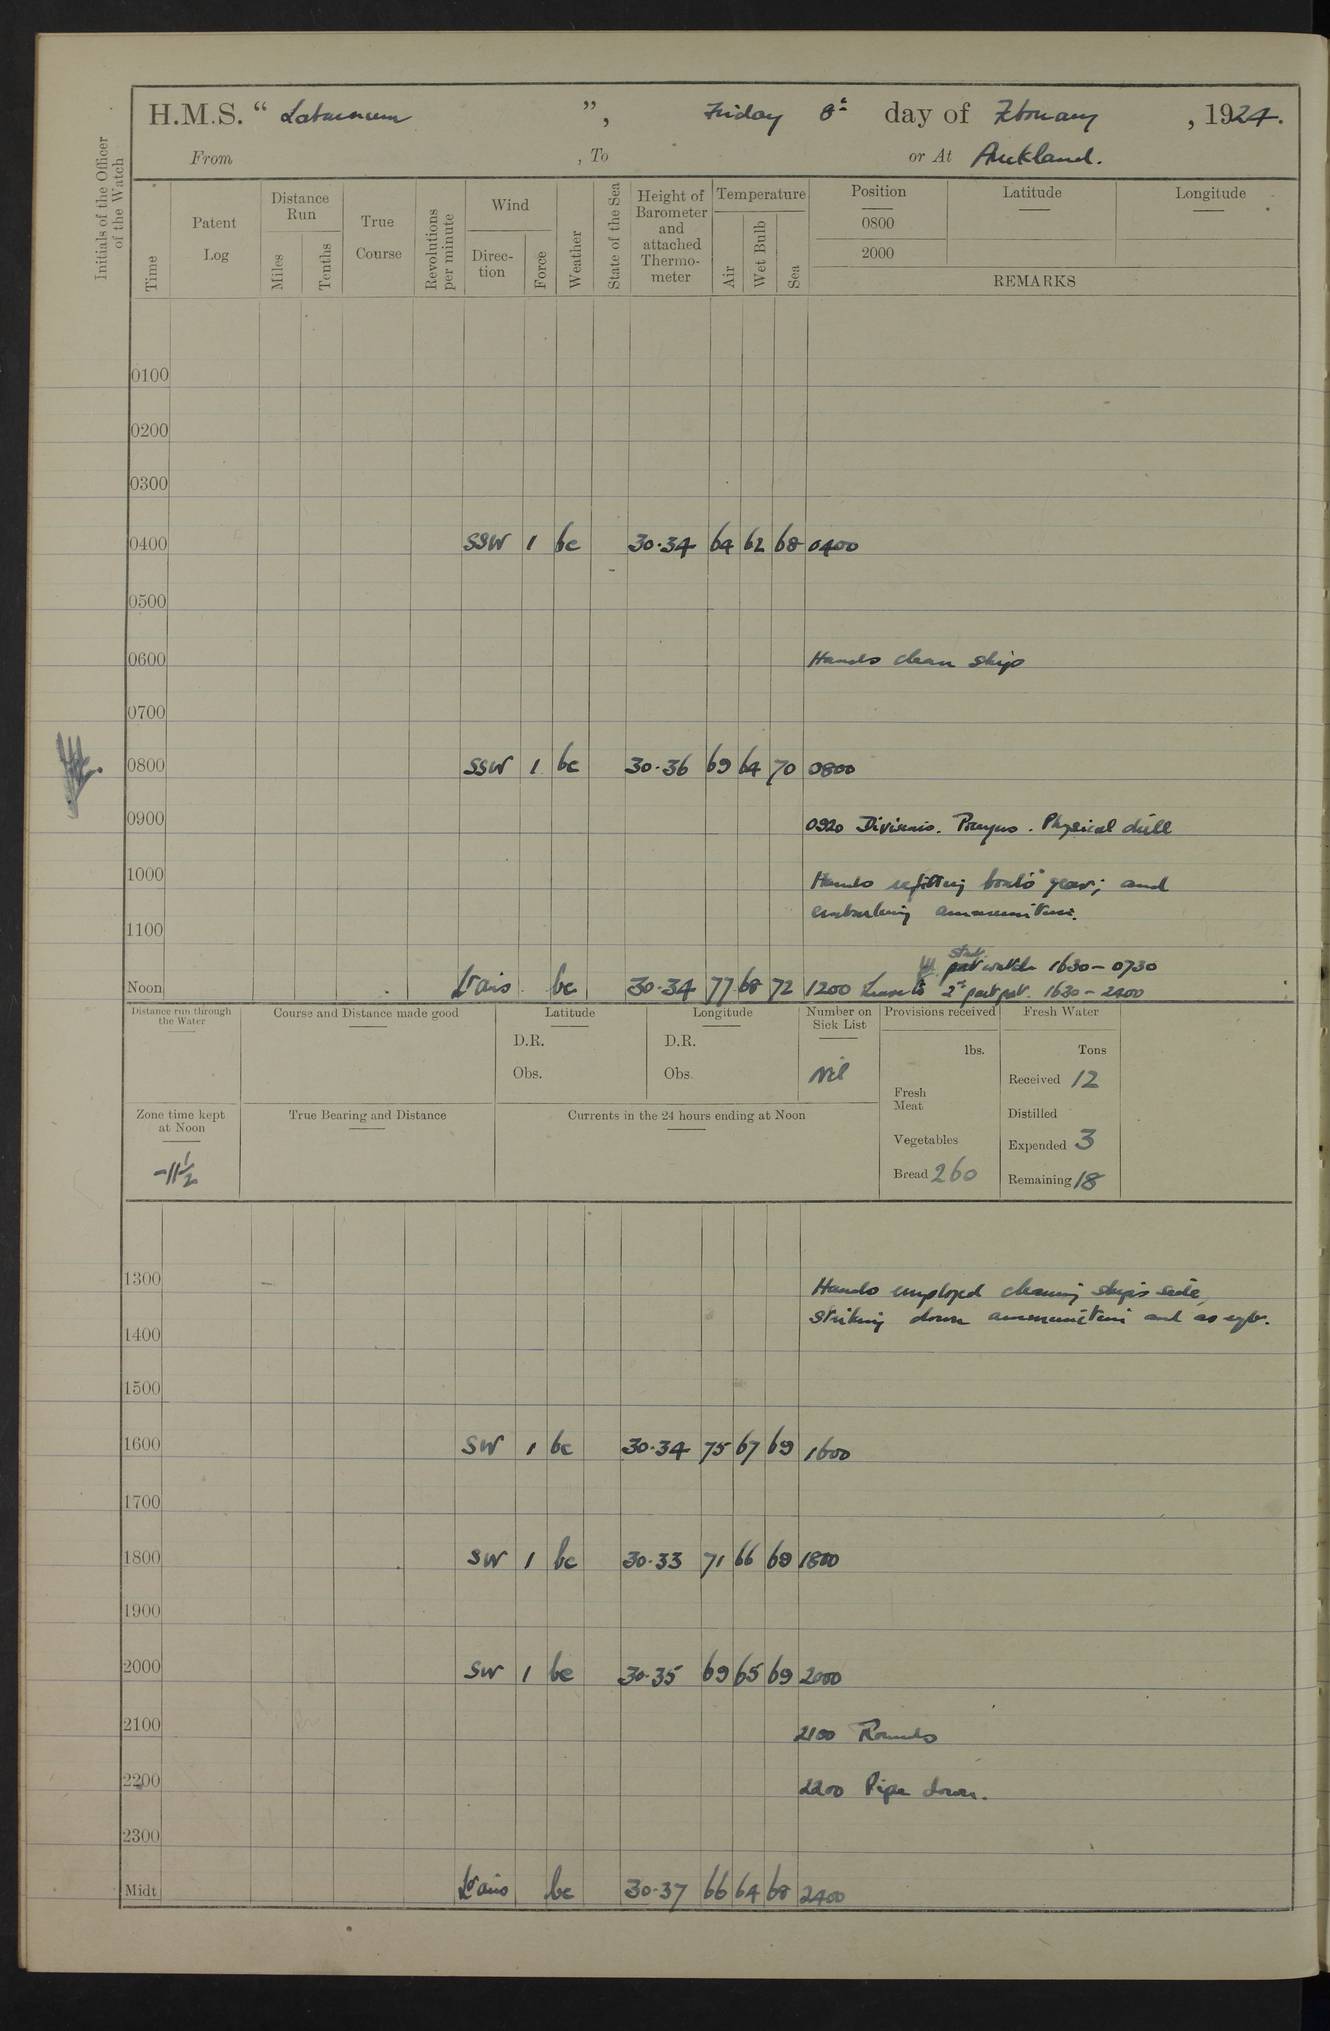 H.M.S. “ Laburnum ”, Friday 8th day of February, 1924.
From , To or At Auckland.
Initials of the Officer of the Watch
Time
Patent Log
Distance Run
Miles
Tenths
True Course
Revolutions per minute
Wind
Direction
Force
Weather
State of the Sea
Height of Barometer and attached Thermometer
Temperature
Air
Wet Bulb
Sea
Position Latitude Longitude
0800
2000
REMARKS
0100
0200
0300
0400 SSW 1 bc 30·34 64 62 68 0400
0500
0600 Hands clean ship
0700
0800 SSW 1 bc 30·36 69 64 70 0800
0900 0920 Divisions. Prayers. Physical drill
1000 Hands refitting boats' gear; and
embarking ammunition.
1100
part watch 1630 – 0730
Noon Lt airs bc 30·34 77 68 72 1200 Leave to 2nd part pst. 1630 – 2400
Distance run through the Water
Course and Distance made good
Latitude
D.R.
Obs.
Longitude
D.R.
Obs.
Number on Sick List
Nil
Provisions received
lbs.
Fresh Meat
Vegetables
Bread 260
Fresh Water
Tons
Received 12
Distilled
Expended 3
Remaining 18
Zone time kept at Noon
-11½
True Bearing and Distance
Currents in the 24 hours ending at Noon
1300 Hands employed cleaning ship's side,
striking down ammunition and as reqte.
1400
1500
1600 SW 1 bc 30·34 75 67 69 1600
1700
1800 SW 1 bc 30·33 71 66 69 1800
1900
2000 SW 1 bc 30·35 69 65 69 2000
2100 2100 Rounds
2200 2200 Pipe down.
2300
Midt Lt airs bc 30·37 66 64 68 2400